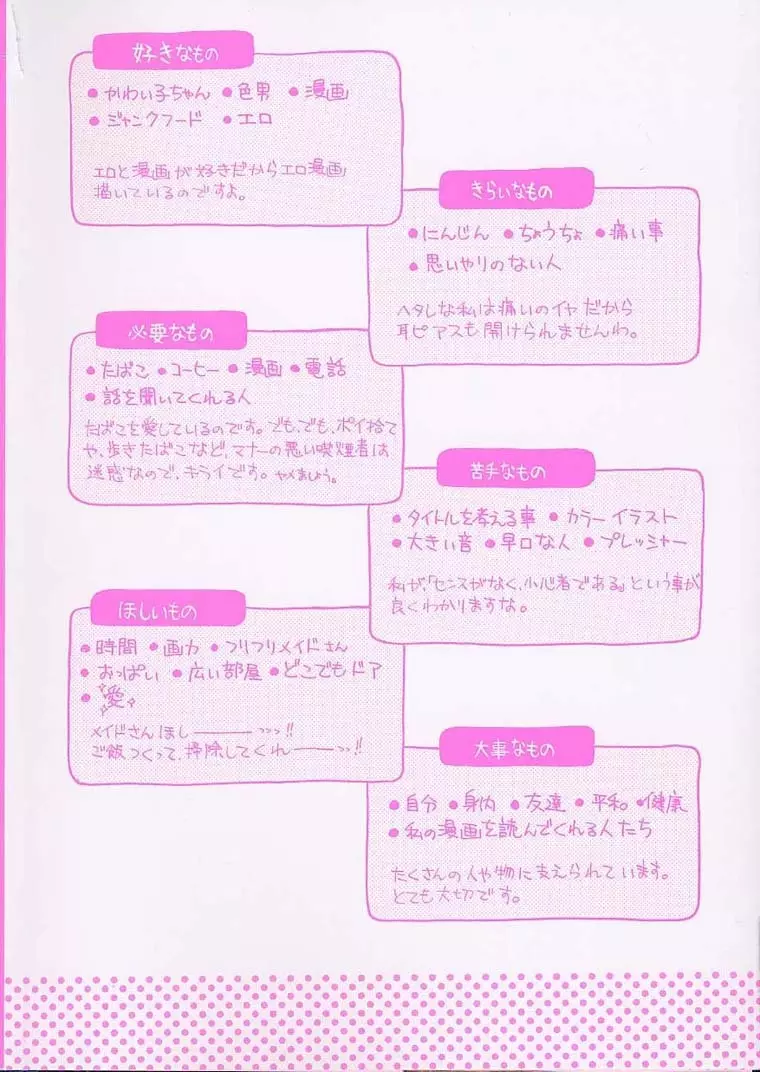 好きなもの
●かわい子ちゃん ●色男 ●漫画
●ジャンクフード ●エロ
エロと漫画が好きだからエロ漫画
描いているのですよ。
きらいなもの
●にんじん ●ちょうちょ ●痛い事
●思いやりのない人
ヘタレな私は痛いのイヤだから
耳ピアスも開けられませんわ。
必要なもの
●たばこ ●コーヒー ●漫画 ●電話
●話を聞いてくれる人
たばこを愛しているのです。でも、でも、ポイ捨て
や、歩きたばこなど、マナーの悪い喫煙者は
迷惑なので、キライです。ヤメましょう。
苦手なもの
●タイトルを考える事 ●カラーイラスト
●大きい音 ●早口な人 ●プレッシャー
私が、「センスがなく、小心者である」という事が
良くわかりますな。
ほしいもの
●時間 ●画力 ●フリフリメイドさん
●おっぱい ●広い部屋 ●どこでもドア
●愛
メイドさんほしーーーっっっ!!
ご飯つくって、掃除してくれーーーっっ!!
大事なもの
●自分 ●身内 ●友達 ●平和。●健康
●私の漫画を読んでくれる人たち
たくさんの人や物に支えられています。
とても大切です。